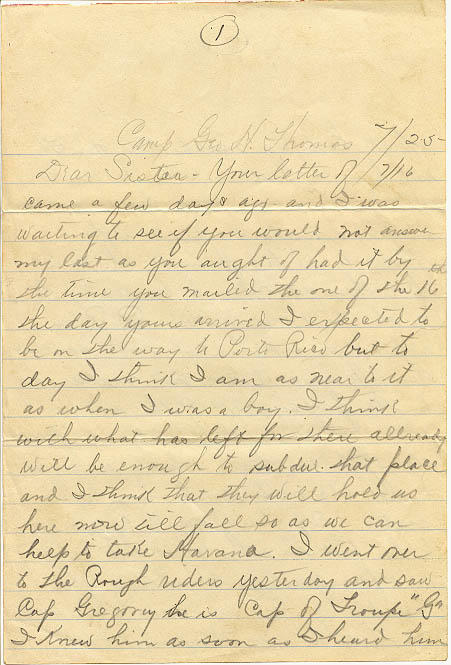 1
Camp Geo H. Thomas 7/25-
Dear Sister - Your letter of 7/16
came a few days ago and I was
waiting to see if you would not answer
my last as you aught of had it by
the time you mailed the one of the 16th
the day yours arrived I expected to
be on the way to Porto Rico but to
day I think I am as near to it
as when I was a boy. I think
with what has left for there allready
will be enough to subdue that place
and I think that they will hold us
here now till fall so as we can
help to take Havana. I went over
to the Rough riders yesterday and saw
Cap Gregory he is Cap of Troupe "G"
I Knew him as soon as I heard him